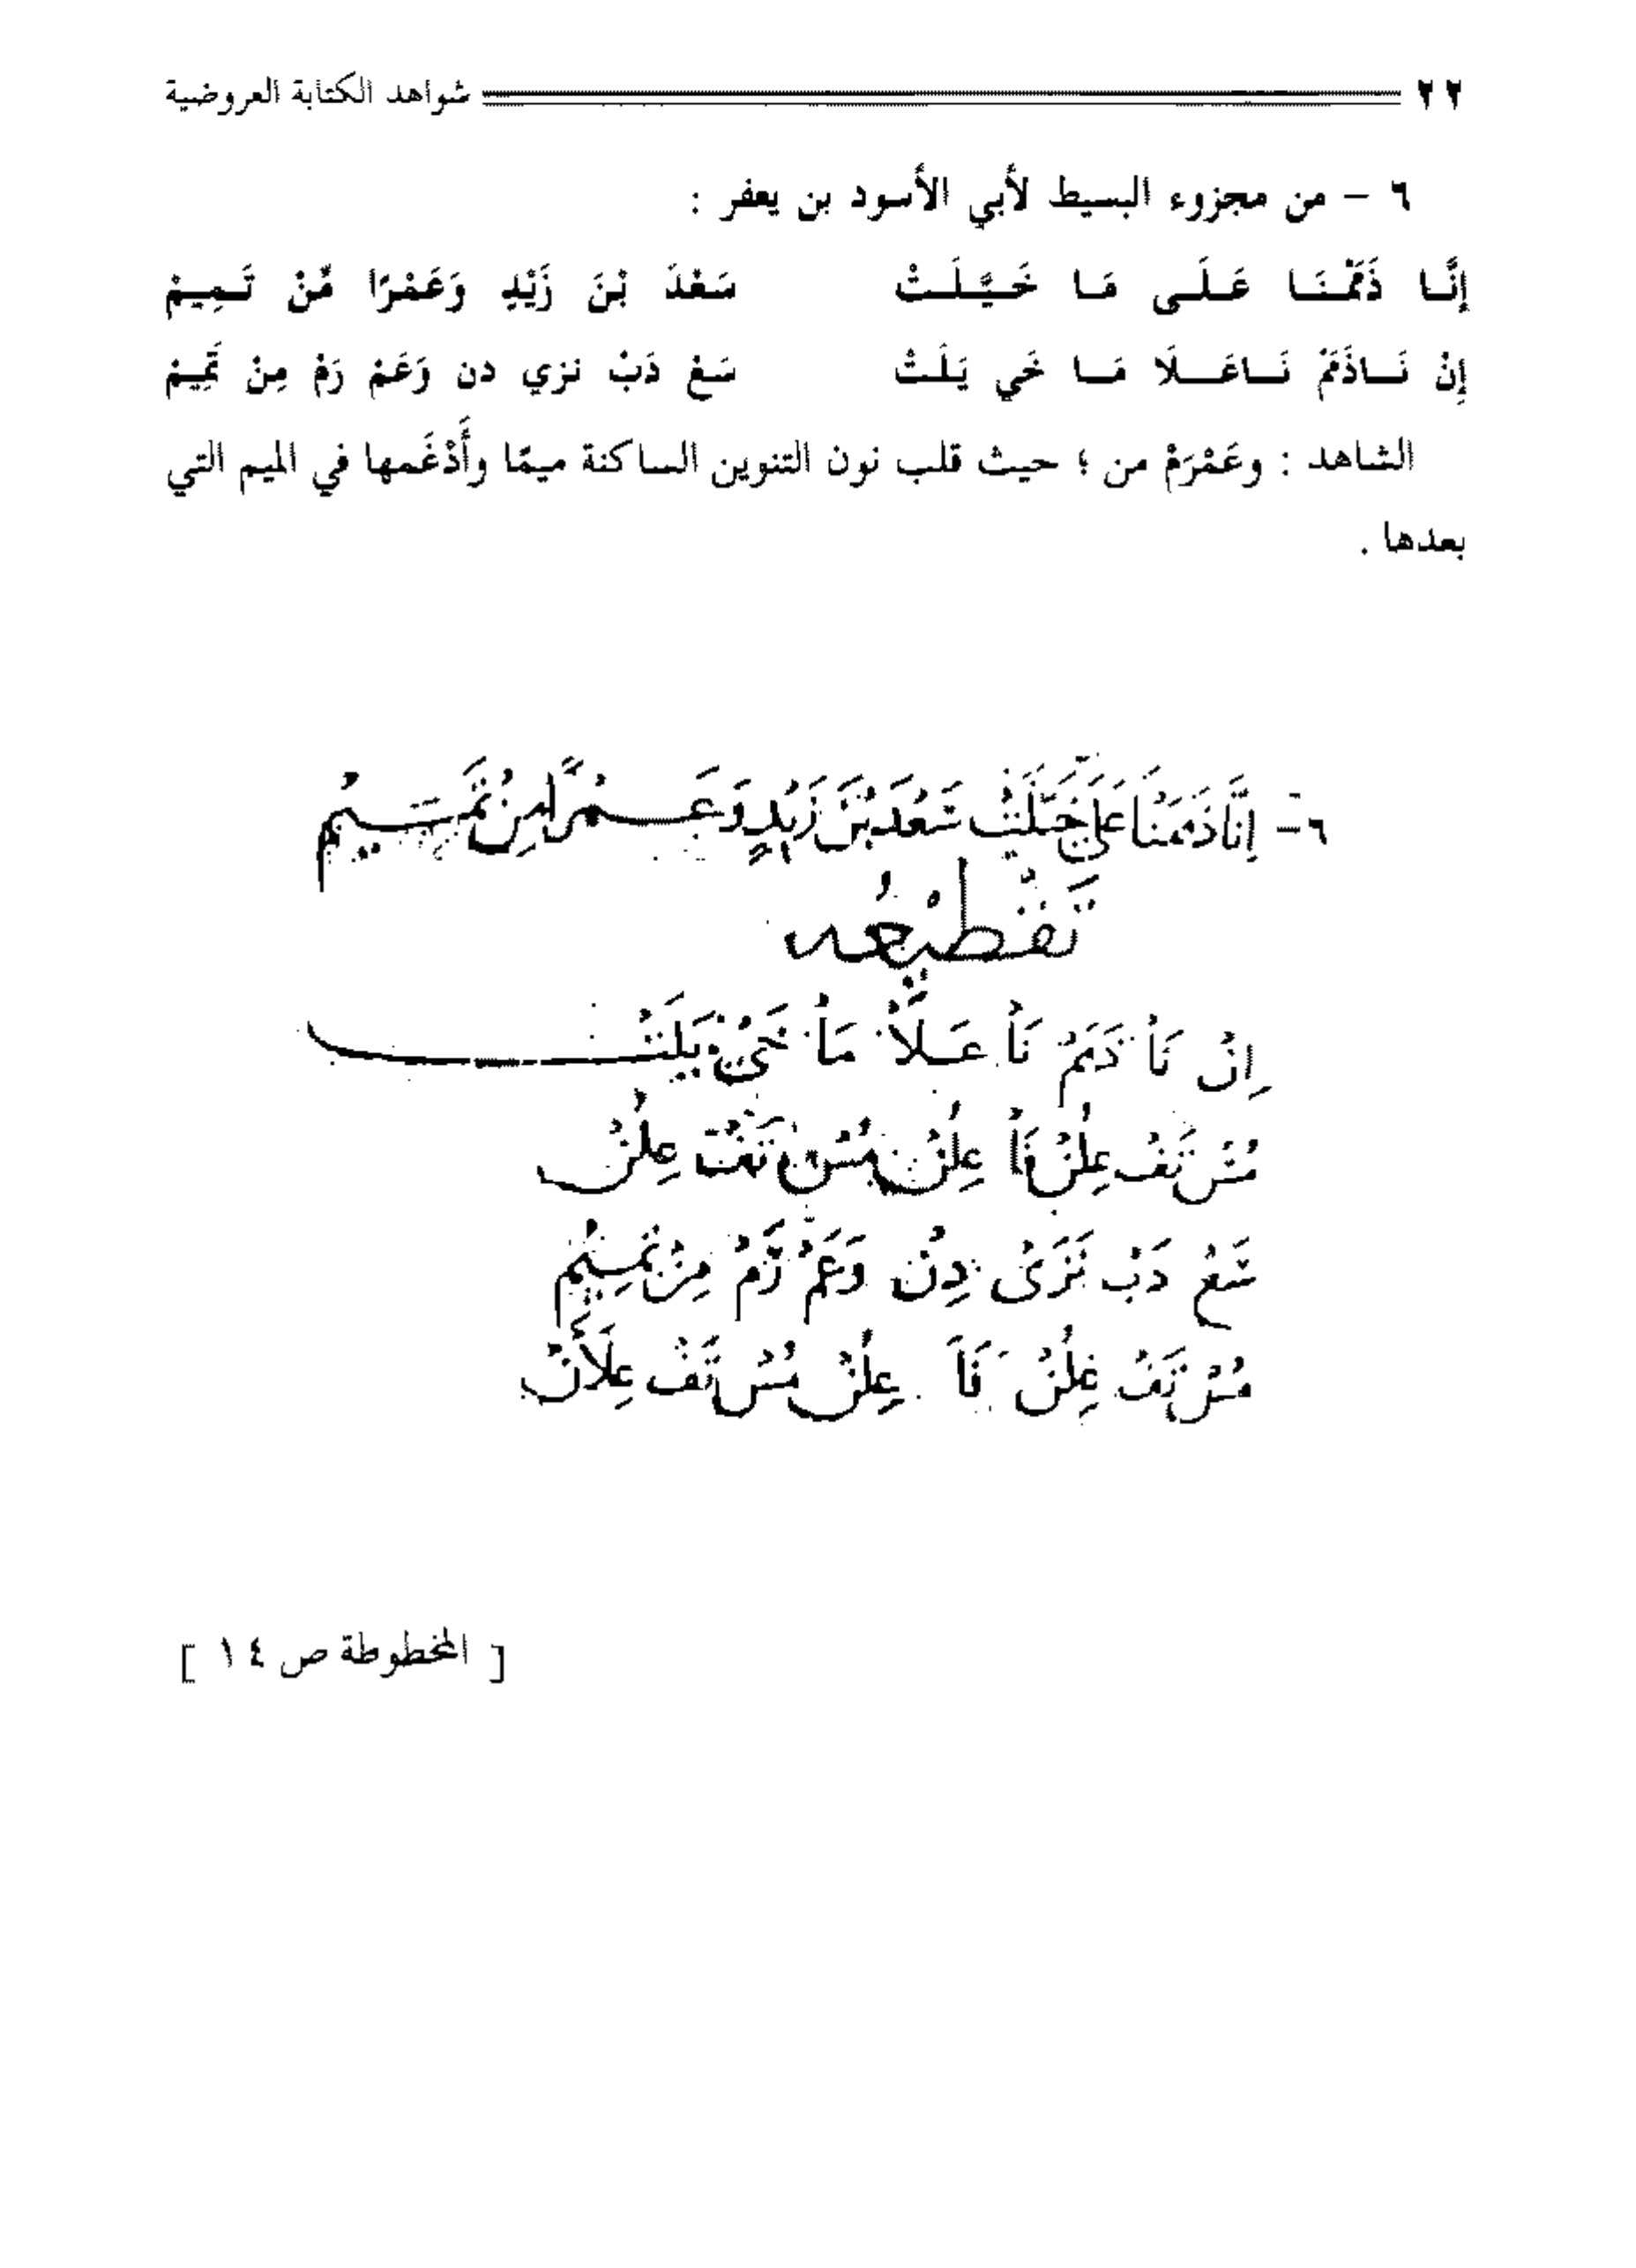 ٢٢ شواهد الكتابة العروضية
٦ – من مجزوء البسيط لأبي الأسود بن يعفر :
إِنَّا ذَمَمْنَا عَلَى مَا خَيَّلَتْ سَعْدَ بْنَ زَيْدٍ وَعَمْرًا مِّنْ تَمِيمْ
إِنْ نَاذَمَمْ نَاعَلَا مَا خَي يَلَتْ سَعْ دَبْ نزي دن وَعَمْ رَمْ مِنْ تَمِيمْ
الشاهد : وعَمْرَمْ من ؛ حيث قلب نون التنوين الساكنة ميمًا وأَدْغَمها في الميم التي
بعدها .
٦ – اِنَّا ذَمَمْنَا عَلَى خَيَّلَتْ سَعْدَ بْنَ زَيْدٍ وَعَمْرًا مِنْ تَمِيمْ
تَقْطِيْعُه
اِنْ نَاْ ذَمَمْ نَاْ عَلَاْ مَاْ خَىْ يَلَتْ
مُسْ تَفْ عِلُنْ فَاْ عِلُنْ مُسْ تَفْ عِلُنْ
سَعْ دَبْ نَزَىْ دِنْ وَعَمْ رَمْ مِنْ تَمِيْمْ
مُسْ تَفْ عِلُنْ فَاَ عِلُنْ مُسْ تَفْ عِلَاْنْ
[ المخطوطة ص ١٤ ]